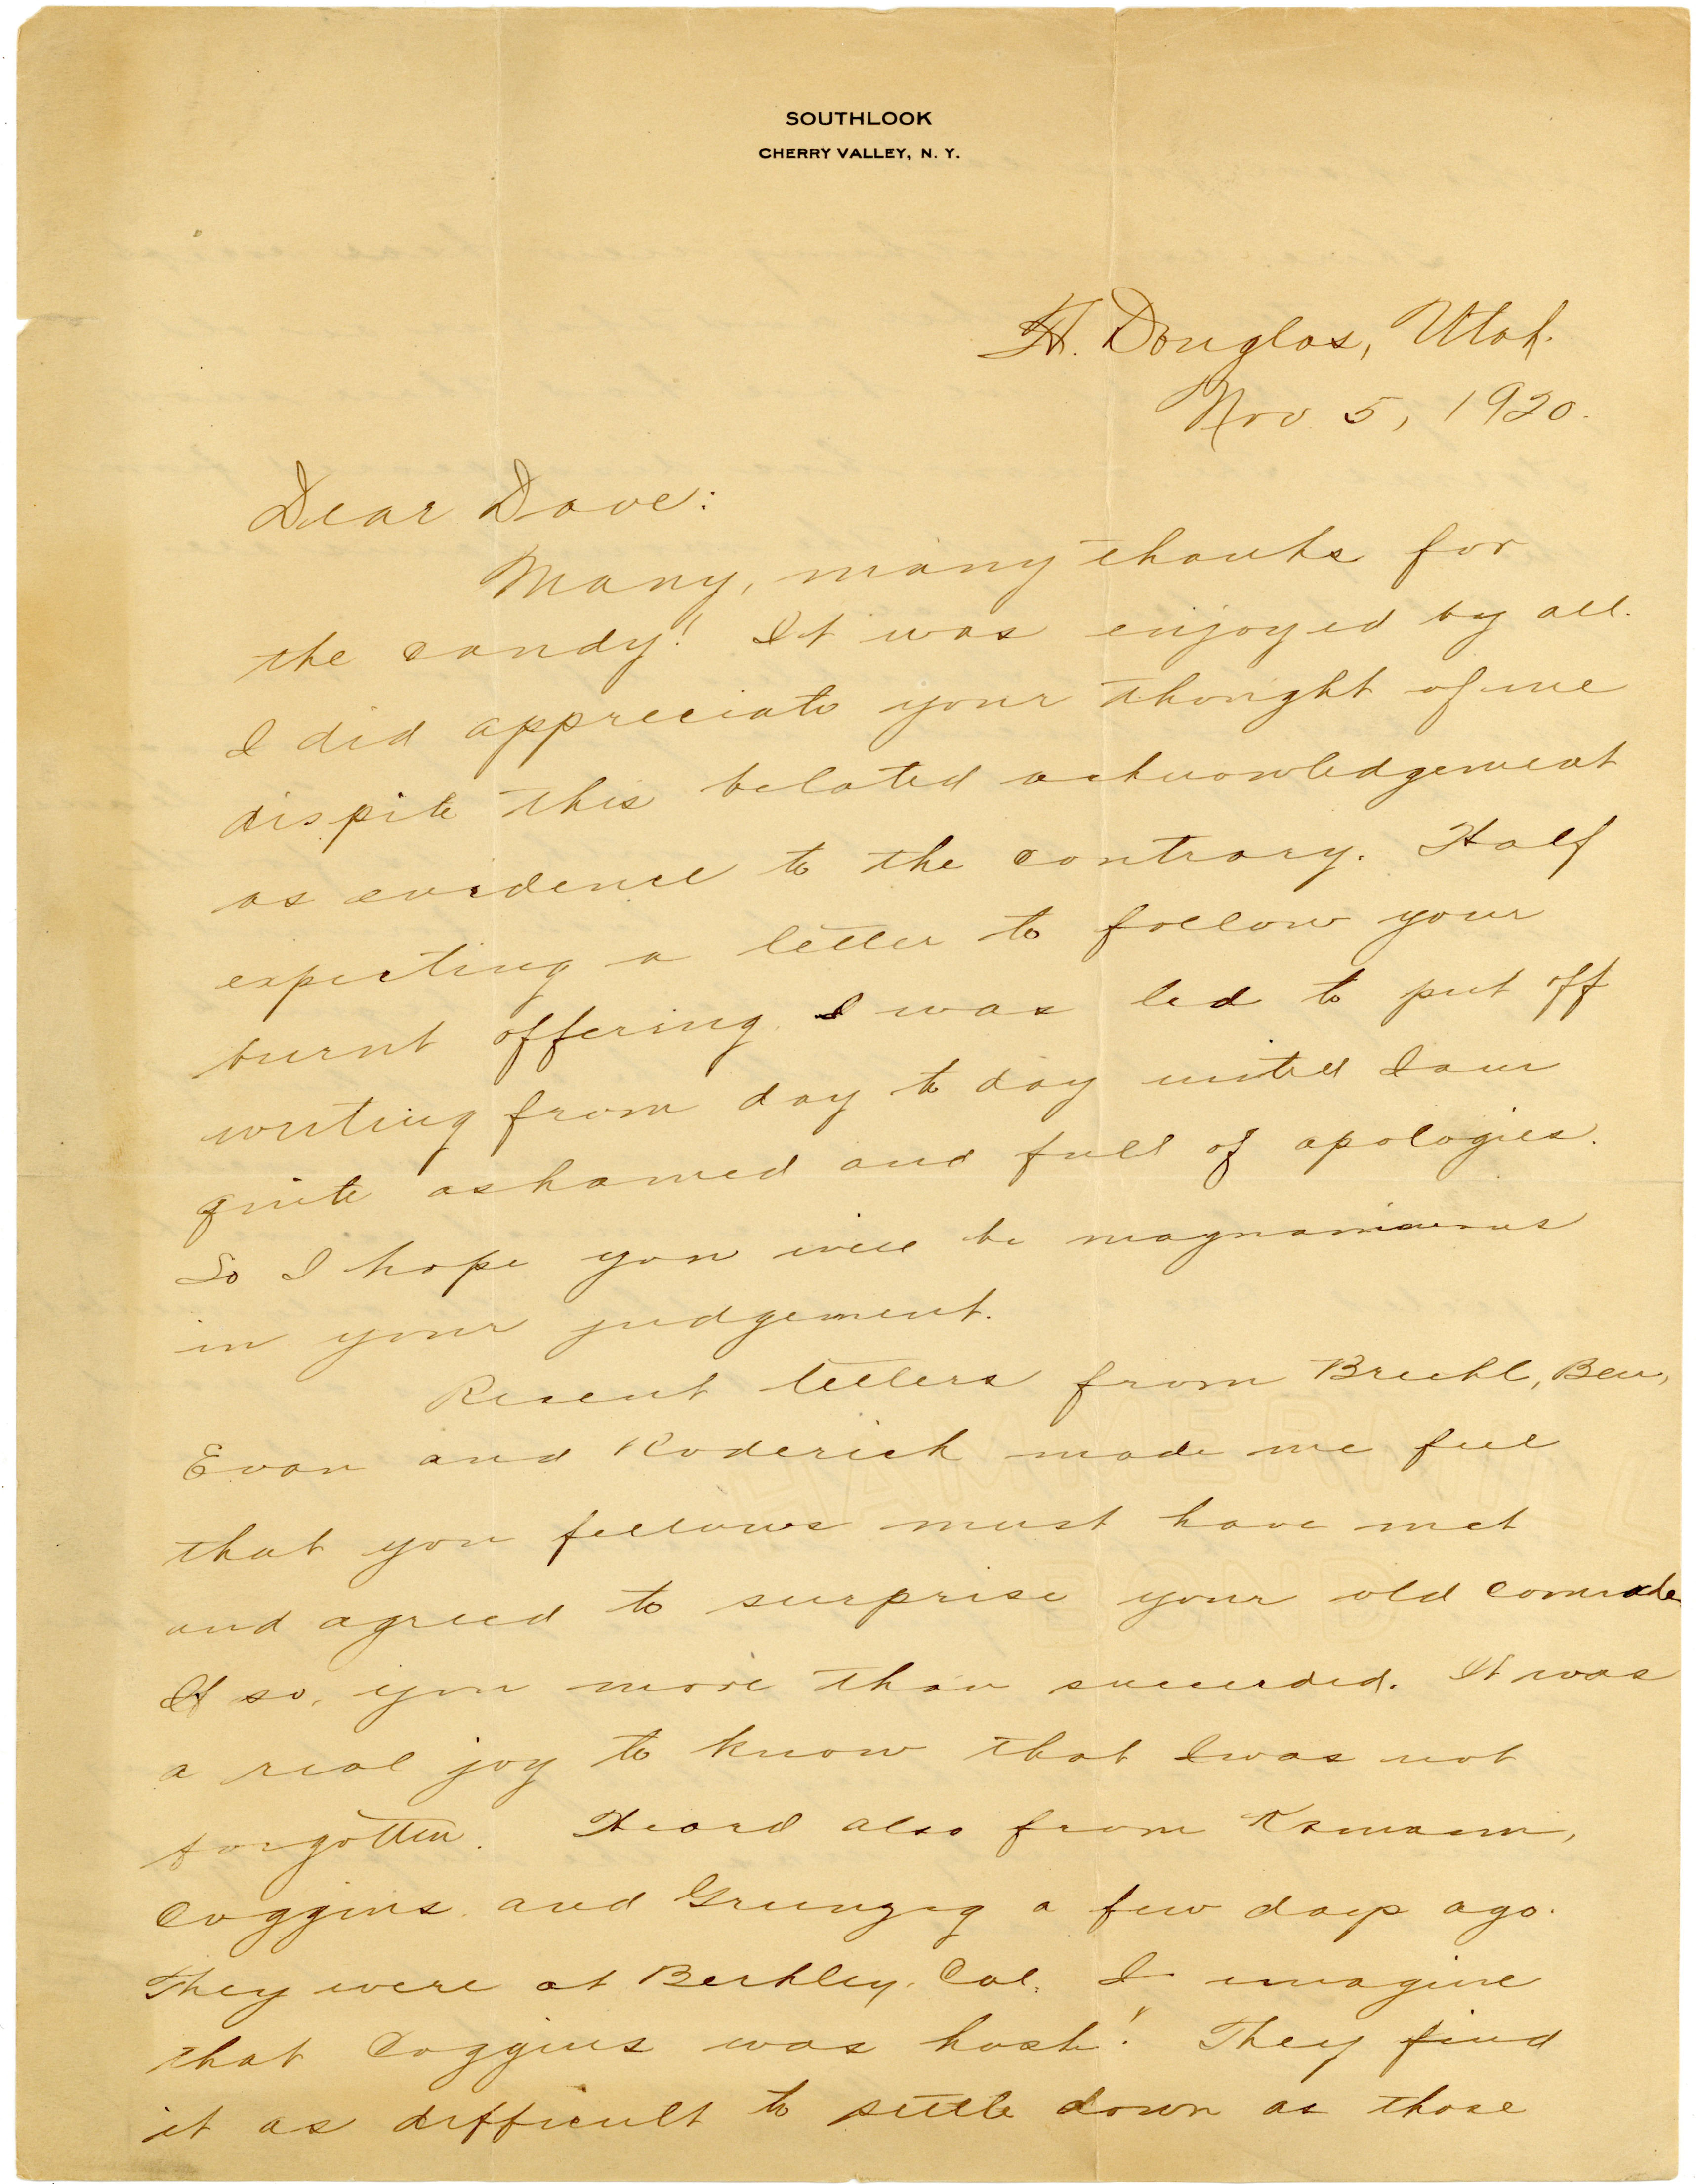 SOUTHLOOK
CHERRY VALLEY, N. Y.
Ft. Douglas, Utah.
Nov 5, 1920.
Dear Dave:
Many, many thanks for
the candy! It was enjoyed by all.
I did appreciate your thought of me
dispite this belated acknowledgement
as evidence to the contrary. Half
expecting a letter to follow your
burnt offering, I was led to put off
writing from day to day until I am
quite ashamed and full of apologies.
So I hope you will be magnanimous
in your judgement.
Recent letters from Bruehl, Ben,
Evan and Roderick made me feel
that you fellows must have met
and agreed to surprise your old comrade
If so, you more than succeeded. It was
a real joy to know that I was not
forgotten. Heard also from
Coggins and Grunzig a few days ago.
They were at Berkley, Cal. I imagine
that Coggins was host! They find
it as difficult to settle down as those
HAMMERMILL
BOND